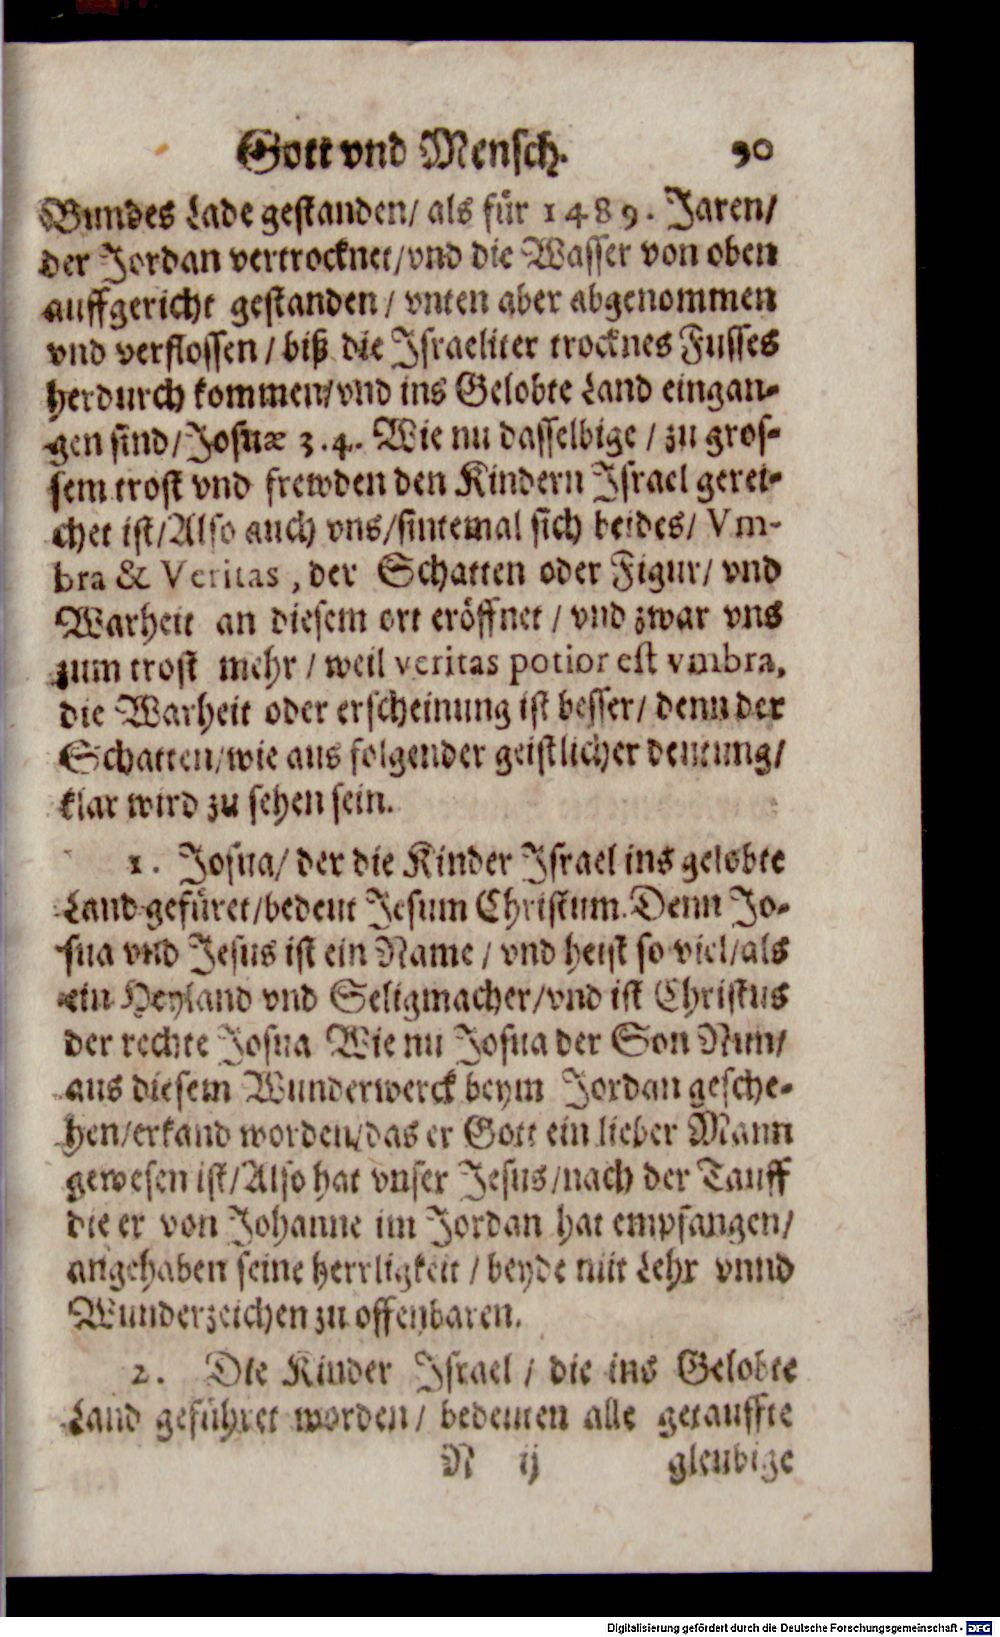 Gott vnd Mensch. 90
Bundes Lade gestanden/ als für 1489. Jaren/
der Jordan vertrocknet/vnd die Wasser von oben
auffgericht gestanden / vnten aber abgenommen
vnd verflossen / biß die Israeliter trocknes Fusses
herdurch kommen/vnd ins Gelobte Land eingan-
gen sind/Josuæ 3.4. Wie nu dasselbige / zu gros-
sem trost vnd frewden den Kindern Israel gerei-
chet ist/Also auch vns/sintemal sich beides/ Vm-
bra & Veritas, der Schatten oder Figur/ vnd
Warheit an diesem ort eröffnet / vnd zwar vns
zum trost mehr / weil veritas potior est vmbra,
die Warheit oder erscheinung ist besser/ denn der
Schatten/wie aus folgender geistlicher deutung/
klar wird zu sehen sein.
1. Josua/ der die Kinder Israel ins gelobte
Land gefüret/bedeut Jesum Christum. Denn Jo-
sua vnd Jesus ist ein Name / vnd heist so viel/als
ein Heyland vnd Seligmacher/vnd ist Christus
der rechte Josua Wie nu Josua der Son Nun/
aus diesem Wunderwerck beym Jordan gesche-
hen/erkand worden/das er Gott ein lieber Mann
gewesen ist/Also hat vnser Jesus/nach der Tauff
die er von Johanne im Jordan hat empfangen/
angehaben seine herrligkeit / beyde mit Lehr vnnd
Wunderzeichen zu offenbaren.
2. DIe Kinder Israel / die ins Gelobte
Land geführet worden/ bedeuten alle getauffte
N ij gleubige
Digitalisierung gefördert durch die Deutsche Forschungsgemeinschaft - DFG